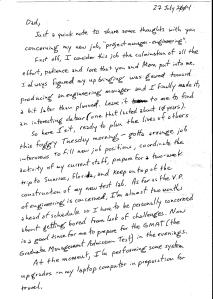 27 July
Dad,
Just a quick note to share some thoughts with you
concerning my new job, "project manager-engineering".
First off, I consider this job the culmination of all the
effort, patience and love that you and Mom put into me.
I always figured my upbringing was geared toward
producing an engineering manager and I finally made it,
a bit later than planned. Leave it to me to find
an interesting detour (one that lasted about 10 years).
So here I sit, ready to plan the lives of others
this foggy Tuesday morning - gotta arrange job
interviews to fill new job positions, coordinate the
activity of my current staff, prepare for a two-week
trip to Sunrise, Florida, and keep on top of the
construction of my new test lab. As far as the V.P.
of engineering is concerned, I'm almost two months
ahead of schedule so I have to be personally concerned
about getting bored from lack of challenges. Now
is a good time for me to prepare for the GMAT (the
Graduate Management Admission Test) in the evenings.
At the moment, I'm performing some system
upgrades on my laptop computer in preparation for
travel.